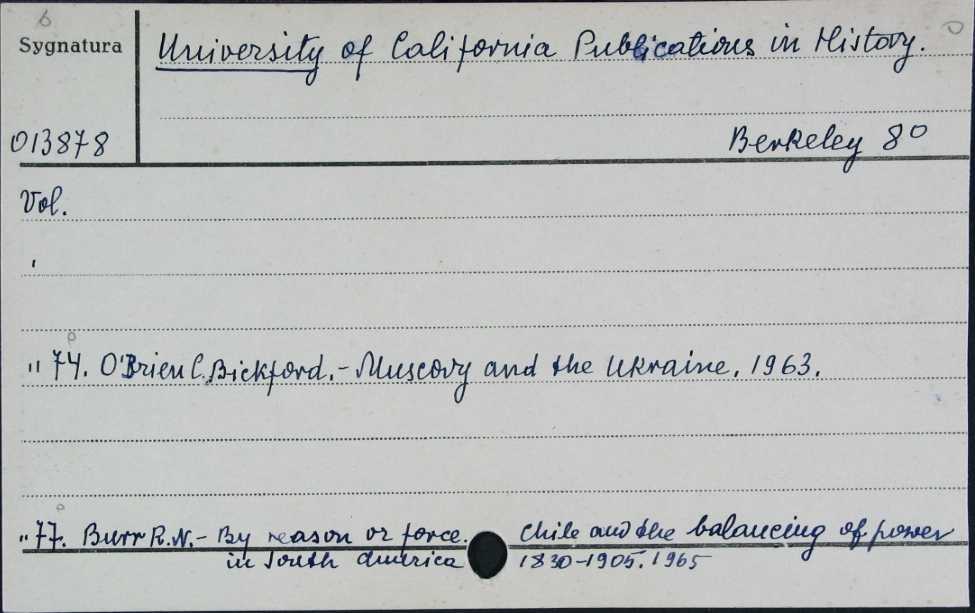 6
Sygnatura
University of California Publications in History.
013878
Berkeley 8°
Vol.
" 74. O'Brien C. Bickford. - Muscovy and the Ukraine. 1963.
" 77. Burr R.N. - By reason or force. Chile and the balancing of power
in South America 1830-1905. 1965